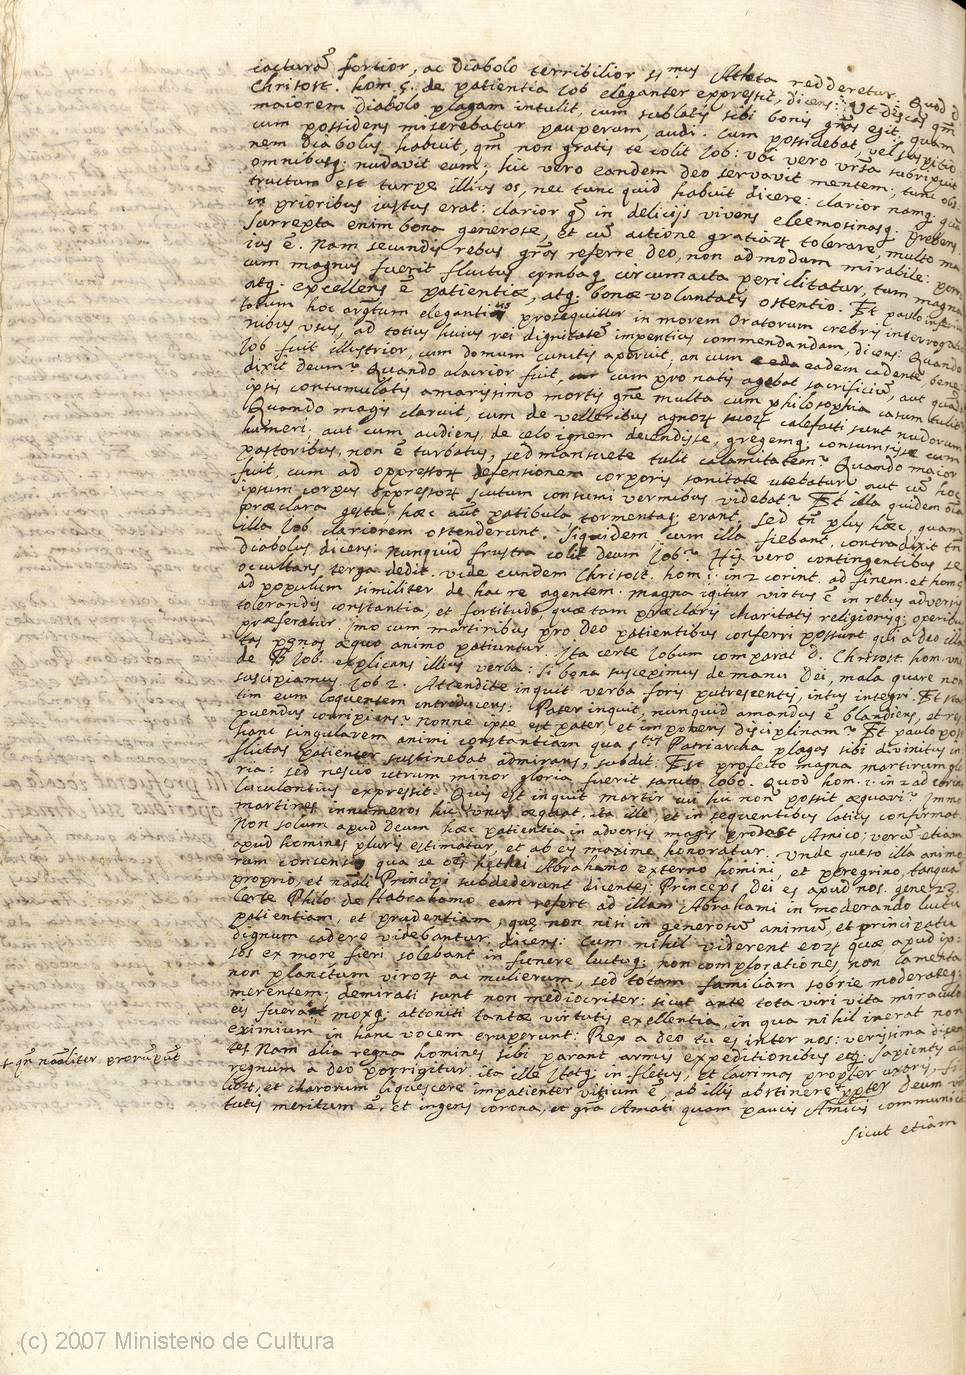 iacturã fortior, ac diabolo terribilior ss.mus Athleta redderetur. Quod d.
Christost. hom. 5. de patientia Iob eleganter expressit, dicens: Ut discas qm̃
maiorem diabolo plagam intulit, cum sublatis sibi bonis gr̃as egit, quam
cum possidens miserebatur pauperum, audi. Cum possidebat, vel suspitio
nem diabolus habuit, qm̃ non gratis te colit Iob: ubi vero vr̃sa subripuit
omnibusq; nudavit eum; hic vero eandem deo servavit mentem; tunc obs
tructum est turpe illius os, nec tunc quid habuit dicere: clarior namq; quã
in prioribus iustus erat: clarior in delicijs vivens eleemosinasq; prebens.
Surrepta enim bona generose, et cũ actione gratiarum tolerare, multo ma
ius ẽ. Nam secundis rebus gr̃as referre deo, non admodum mirabile: porro
cum magnus fuerit fluctus cymbaq; circumacta periclitatur, tum magna
atq; excellens ẽ patientiæ, atq; bonæ voluntatis ostentio. Et paulo inferius
totum hoc arg̃tum elegantius prosequitur in morem Oratorum crebris interrogatio
nibus usus, ad totius huius rei dignitatẽ impentius commendandam, dicens: Quando
Iob fuit illustrior, cum domum cunctis aperuit, an cum eadem cadente bene
dixit deum? Quando alacrior fuit, cum pro natis agebat sacrificiũ, aut quãdo
ipsis contumulatis amarissimo mortis gñe multa cum philosophia casum tulit?
Quando magis claruit, cum de velleribus agnorum suorum calefacti sunt nudorum
humeri: aut cum audiens, de celo ignem decendisse, gregemq; consumsisse cum
pastoribus, non ẽ turbatus, sed mansuete tulit calamitatem? Quando maior
fuit, cum ad oppressorum defensionem corporis sanitate utebatur aut cũ hoc
ipsum corpus oppressorum scutum consumi vermibus videbat? Et illa quidem oĩa
præclara gesta: hæc aũt patibula tormentaq; erant, sed tñ plus hæc, quam
illa Iob clariorem ostenderunt. Siquidem cum illa fiebant, contradixit tñ
diabolus dicens: Nunquid frustra colit deum Iob? Hijs vero contingentibus se
occultans terga dedit. Vide eundem Christost. hom. 1. in 2 corint. ad finem. et hom. 5
ad populum similiter de hac re agentem. Magna igitur virtus ẽ in rebus adversis
tolerandis constantia, et fortitudo, quæ tam præclaris charitatis religionisq; operibus
præferatur. Imo cum martiribus pro deo patientibus conferri possunt qui a deo illa
tas pœnas æquo animo patiuntur. Ita certe Iobum comparat d. Christost. hom. una
de Iob. explicans illius verba: Si bona suscepimus de manu Dei, mala quare non
suscipiamus Iob 2. Attendite inquit verba foris putrescentis, intus integri. Et sta
tim eum loquentem introducens: Pater inquit, nunquid amandus ẽ blandiens, et res
puendus corripiens? nonne ipse est pater, et imponens disciplinam? Et paulo post
hanc singularem animi constantiam qua s.tus Patriarcha plagas sibi divinitus in
flictas patienter sustinebat admirans, subdit: Est profecto magna martirum glo
ria: sed nescio utrum minor gloria fuerit sancto Iobo. Quod hom. 1. in 2 ad corint
luculentius expressit. Quis est inquit martir cui hic non possit æquari? Immo
martires innumeros hic unus æquat. ita ille, et in sequentibus latius confirmat.
Non solum apud Deum hæc patientia in adversis magis prodest Amico: verũ etiam
apud homines pluris estimatur, et ab eis maxime honoratur. Unde queso illa animo
rum concensio qua se oẽs hethei Abrahamo externo homini, et peregrino, tanquã
proprio, et nãali Principi subdederunt dicentes; Princeps Dei es apud nos. gene. 23.
Certe Philo de Habrahamo eam refert ad illam Abrahami in moderando luctu
patientiam, et prudentiam, quæ non nisi in generosũ animũ, et principatu
dignum cadere videbantur. dicens: Cum nihil viderent eorum quæ apud ip:
sos ex more fieri solebant in funere luctuq; non complorationes, non lamenta
non planctum virorum ac mulierum, sed totam familiam sobrie moderateq;
merentem; demirati sunt non mediocriter: sicut ante tota viri vita miraculo
eis fuerat moxq; attoniti tantæ virtutis exellentia, in qua nihil inerat non
eximium in hanc vocem eruperunt: Rex a deo tu es inter nos: verissima dicen
tes. Nam alia regna homines sibi parant armis expeditionibus etq; Sapientis aũt
regnum a deo porrigitur. ita ille. Itatq; in fletus, et lacrimas propter uxoris, fi
liorum, et charorum liquescere impatienter vitium ẽ, ab illis abstinere propter deum vir
tutis meritum ẽ, et ingens corona, et gr̃a Amati quam paucis Amicis communica
Sicut etiam
s. qñ nãaliter prorũpũt
(c) 2007 Ministerio de Cultura